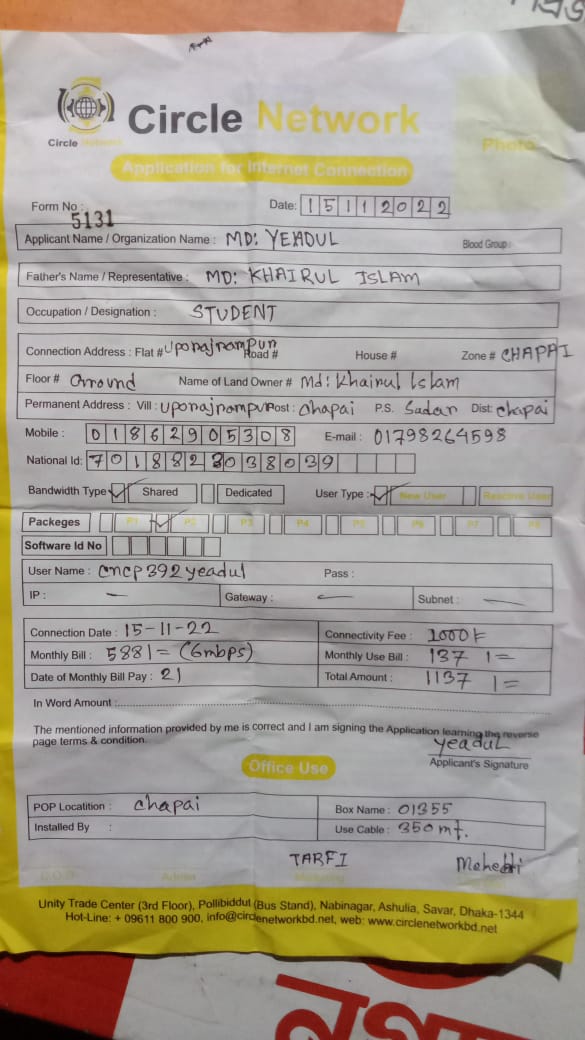 Circle Network
Circle Network
Application for Internet Connection
Photo
Form No :
5131
Date: 15112022
Applicant Name / Organization Name : MD: YEADUL Blood Group :
Father's Name / Representative : MD: KHAIRUL ISLAM
Occupation / Designation : STUDENT
Connection Address : Flat # Uporajrampur Road # House # Zone # CHAPAI
Floor # Name of Land Owner # Md: Khairul Islam
Permanent Address : Vill : Uporajrampur Post : Chapai P.S. Sadar Dist: Chapai
Mobile : 01862905308 E-mail : 01798264598
National Id:
Bandwidth Type Shared Dedicated User Type : New User Reactive User
Packeges P1 P2 P3 P4 P5 P6 P7 P8
Software Id No
User Name : cncp392yeadul Pass :
IP : — Gateway : — Subnet : —
Connection Date : 15-11-22 Connectivity Fee : 1000
Monthly Bill : 588/= (6mbps) Monthly Use Bill : 137 /=
Date of Monthly Bill Pay : 21 Total Amount : 1137 /=
In Word Amount :
The mentioned information provided by me is correct and I am signing the Application learning the reverse
page terms & condition.
yeaduL
Applicant's Signature
Office Use
POP Locatition : Chapai Box Name : 01355
Installed By : Use Cable : 350 mt.
TARFI Mehedi
C.O.O Admin Marketing
Unity Trade Center (3rd Floor), Pollibiddut (Bus Stand), Nabinagar, Ashulia, Savar, Dhaka-1344
Hot-Line: + 09611 800 900, info@circlenetworkbd.net, web: www.circlenetworkbd.net